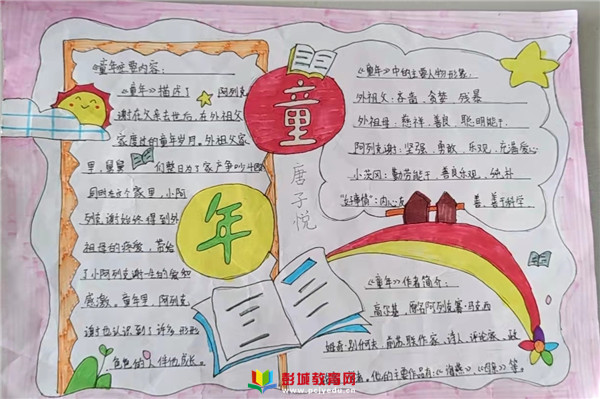 《童年》主要内容:
《童年》描述了阿列克
谢在父亲去世后,在外祖父
家度过的童年岁月。外祖父家
里,舅舅们整日为了家产争吵斗殴
同时在这个家里,小阿
列克谢始终得到外
祖母的疼爱,
了小阿列克谢一生的
感激,童年里,阿列克
谢也认识到了许多形形
色色的人伴他成长。
童
年
唐子悦
《童年》中的主要人物形象:
外祖父:吝啬 贪婪 残暴
外祖母:慈祥、善良、聪明能干
阿列克谢:坚强、勇敢、乐观、充满爱心
小茨冈:勤劳能干、善良乐观、纯朴
"好事情":内心 善、善于科学
《童年》作者简介:
高尔基,原名阿列克赛·马克西
姆维奇·别什可夫,前苏联作家、诗人、评论家、政
他的主要作品有:《海燕》、《母亲》等。
彭城教育网
www.pcjyedu.cn